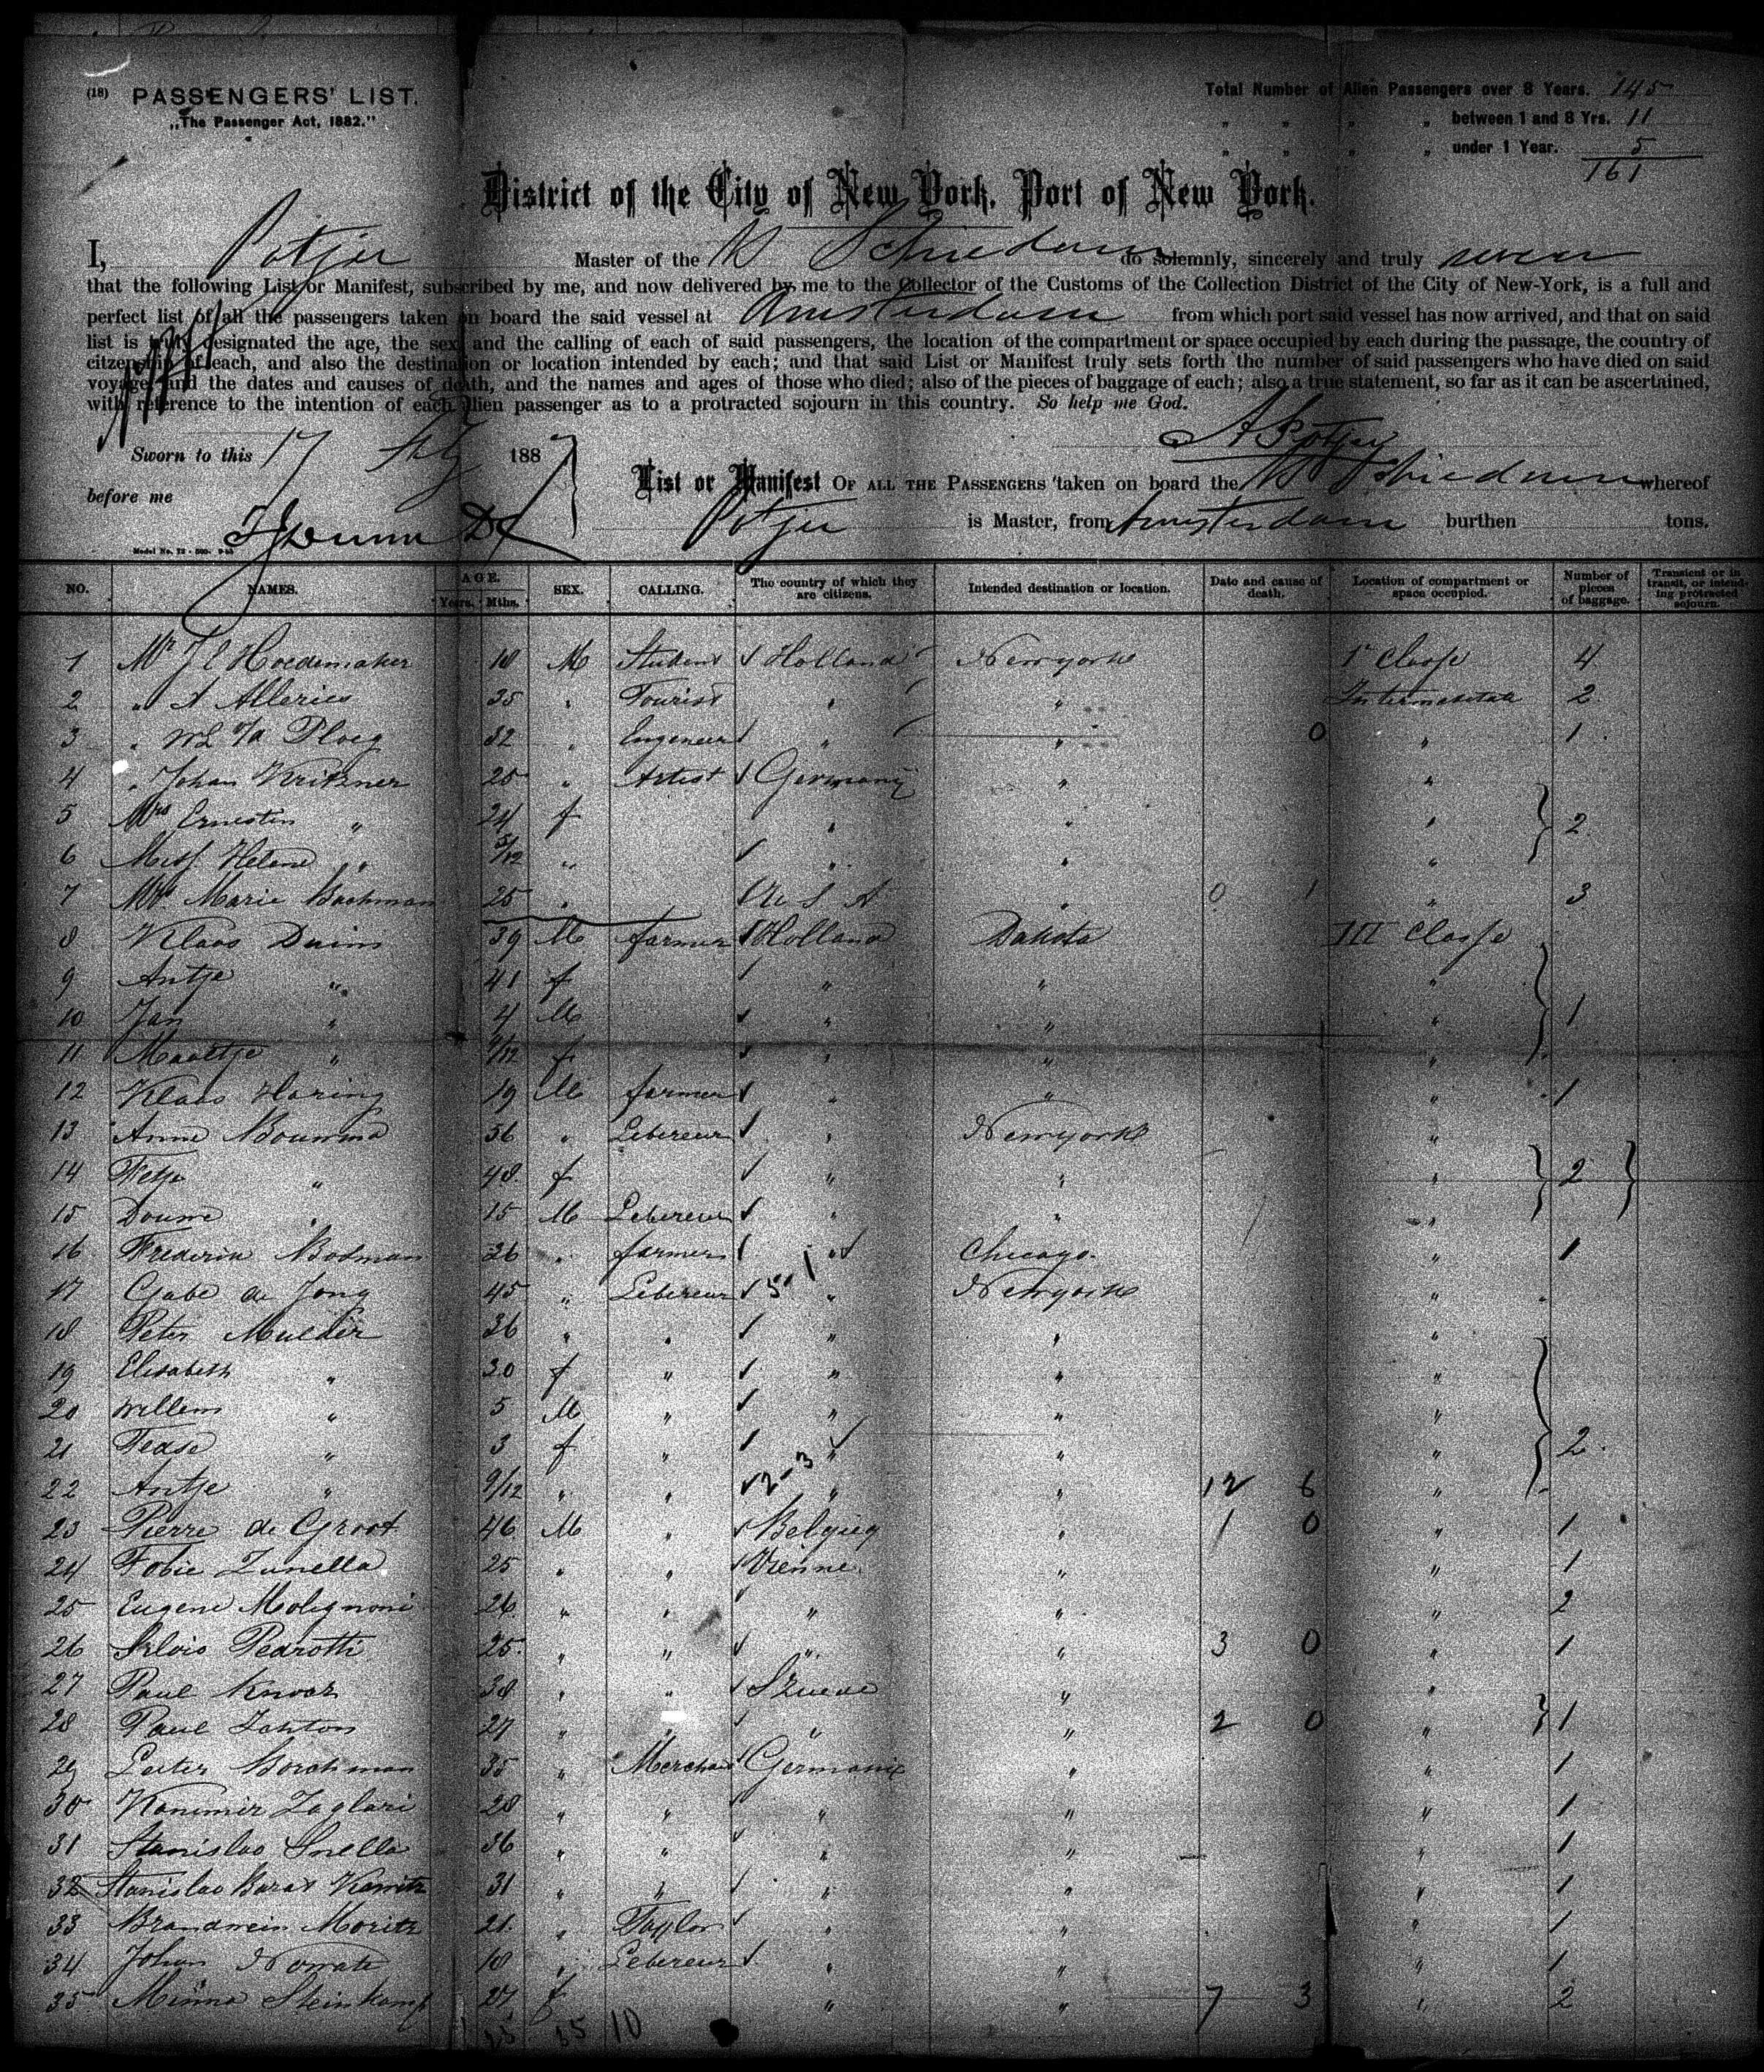 (18) PASSENGERS' LIST.
„The Passenger Act, 1882."
Total Number of Alien Passengers over 8 Years. 145
„ „ „ „ between 1 and 8 Yrs. 11
„ „ „ „ under 1 Year. 5
161
District of the City of New York, Port of New York.
I, Potjer Master of the Schiedam do solemnly, sincerely and truly swear
that the following List or Manifest, subscribed by me, and now delivered by me to the Collector of the Customs of the Collection District of the City of New-York, is a full and
perfect list of all the passengers taken on board the said vessel at Amsterdam from which port said vessel has now arrived, and that on said
list is truly designated the age, the sex and the calling of each of said passengers, the location of the compartment or space occupied by each during the passage, the country of
citzenship of each, and also the destination or location intended by each; and that said List or Manifest truly sets forth the number of said passengers who have died on said
voyage, and the dates and causes of death, and the names and ages of those who died; also of the pieces of baggage of each; also a true statement, so far as it can be ascertained,
with reference to the intention of each alien passenger as to a protracted sojourn in this country. So help me God.
A Potjer
Sworn to this 17 1887
before me
List or Manifest OF ALL THE PASSENGERS taken on board the Schiedam whereof
Potjer is Master, from Amsterdam burthen tons.
NO. NAMES. AGE. Years. Mths. SEX. CALLING. The country of which they are citizens. Intended destination or location. Date and cause of death. Location of compartment or space occupied. Number of pieces of baggage. Transient or in transit, or intending protracted sojourn.
1 Mr J C Hoedemaker 18 M Student Holland Newyork 1e Classe 4
2 „ A Alleries 35 „ Tourist „ „ Intermediate 2
3 „ v/d Ploeg 32 „ Engeneer „ „ 0 „ 1
4 „ Johan Kritzner 25 „ Artist Germany „ „
5 Mrs Ernestin „ 24 f „ „ „ 2
6 Miss Helene „ 5/12 „ „ „ „
7 Mrs Marie Bachman 25 „ U S A „ 0 1 „ 3
8 Klaas Duins 39 M farmer Holland Dakota III Classe
9 Antje „ 41 f „ „ „
10 Jan „ 4 M „ „ „ 1
11 Maartje „ f „ „ „
12 Klaas Haring 19 M farmer „ „ „ 1
13 Anne Bouwma 56 „ Lebereur „ Newyork „
14 Fetje „ 48 f „ „ „ 2
15 Douwe „ 15 M Lebereur „ „ „
16 Frederik Bodman 26 „ farmer „ Chicago. „ 1
17 Gabe de Jong 45 „ Lebereur 5 „ Newyork „ „
18 Peter Mulder 36 „ „ „ „ „
19 Elisabeth „ 30 f „ „ „ „
20 Willem „ 5 M „ „ „ „
21 „ 3 f „ „ „ „ 2
22 Antje „ 9/12 „ „ 2-3 „ „ 12 6 „
23 Pierre de Groot 46 M „ Belgieq „ 1 0 „ 1
24 Tobie Zunella 25 „ „ Vienne „ „ 1
25 Eugene Molignoni 26 „ „ „ „ „ 2
26 Silvio Pedrotti 25 „ „ „ „ 3 0 „ 1
27 Paul Knoor 38 „ „ „ „
28 Paul 27 „ „ „ „ 2 0 „ 1
29 Peiter Borchman 35 „ Merchant Germanie „ „ 1
30 Kasimir Zaglari 28 „ „ „ „ „ 1
31 Stanislao Snella 36 „ „ „ „ „ 1
32 Stanislao 31 „ „ „ „ „ 1
33 Brandwein Moritz 21 „ Taylor „ „ „ 1
34 Johan 18 „ Lebereur „ „ „ 1
35 Minna Steinkamp 27 f „ „ 7 3 „ 2
35 35 10